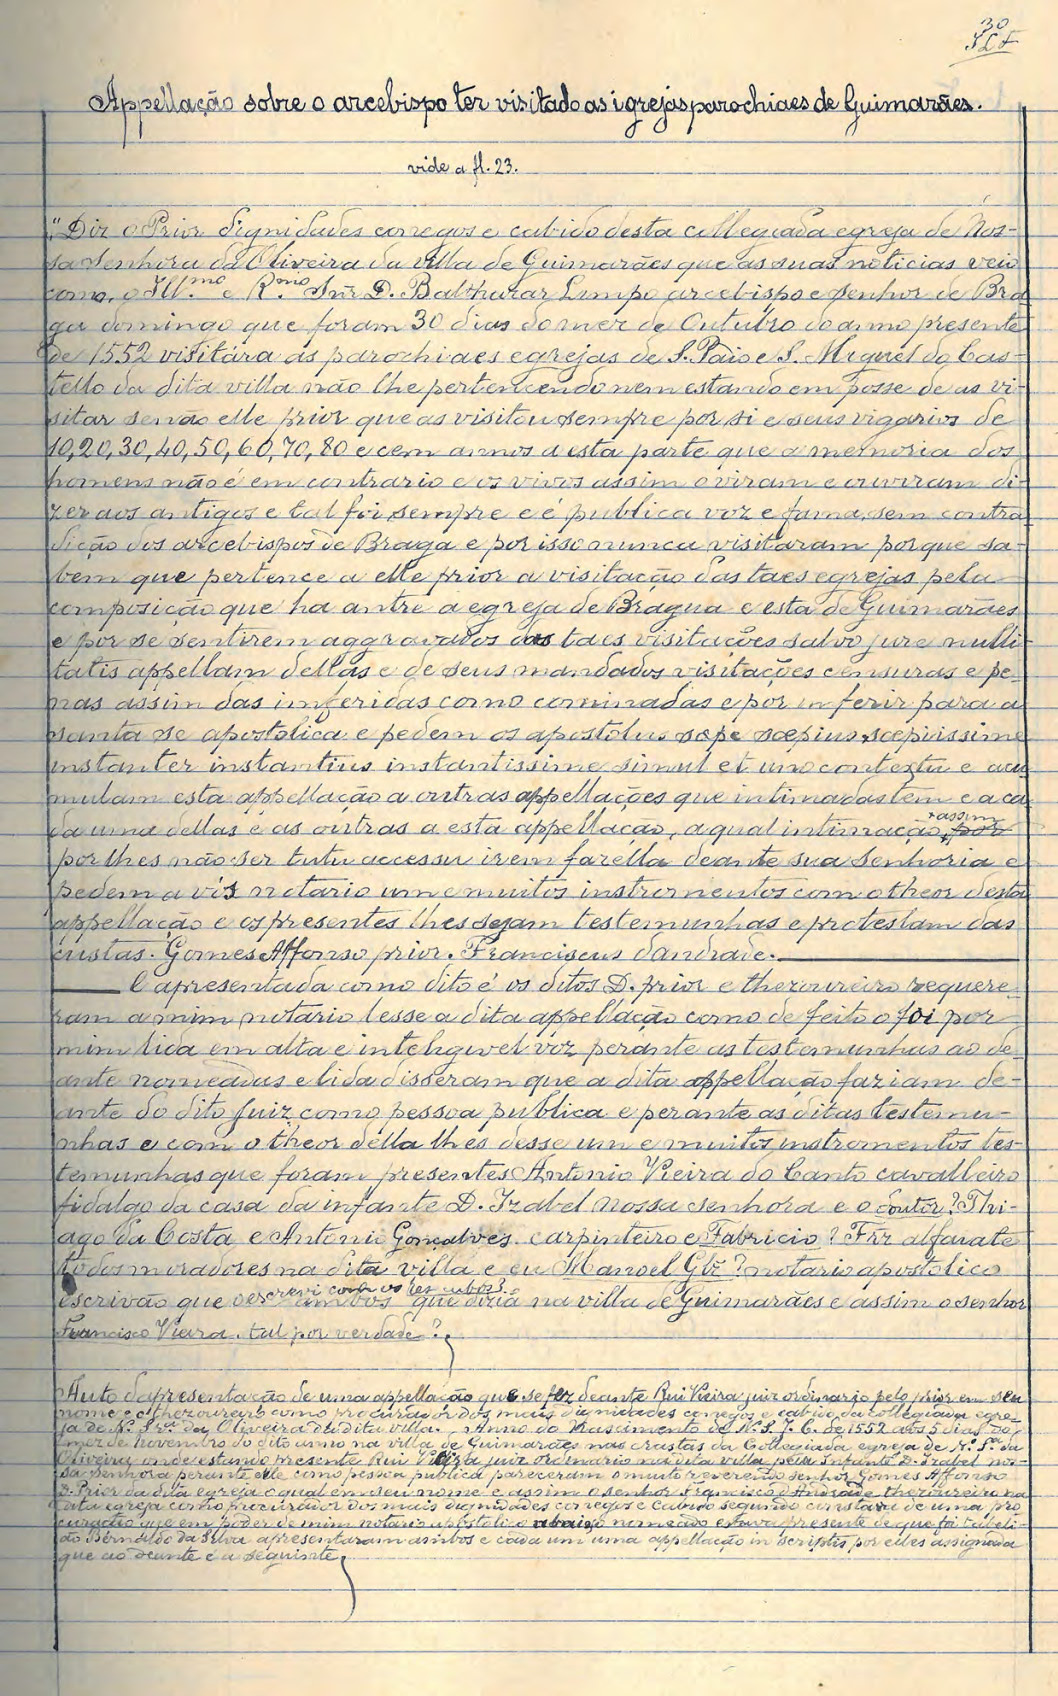 30
Appellação sobre o arcebispo ter visitado as igrejas parochiaes de Guimarães.
vide a fl. 23.
"Diz o Prior dignidades conegos e cabido desta collegiada egreja de Nos-
sa Senhora da Oliveira da villa de Guimarães que as suas noticias veio
como o Ill.mo e R.mo Snr D. Balthazar Limpo arcebispo e senhor de Bra
ga domingo que foram 30 dias do mez de Outubro do anno presente
de 1552 visitára as parochiaes egrejas de S. Paio e S. Miguel do Cas-
tello da dita villa não lhe pertencendo nem estando em posse de as vi-
sitar senão elle prior que as visitou sempre por si e seus vigarios de
10, 20, 30, 40, 50, 60, 70, 80 e cem annos a esta parte que a memoria dos
homens não é em contrario e os vivos assim o viram e ouviram di-
zer aos antigos e tal foi sempre e é publica voz e fama sem contra
dicção dos arcebispos de Braga e por isso nunca visitaram porque sa-
bem que pertence a elle prior a visitação das taes egrejas pela
composição que ha antre a egreja de Brágua e esta de Guimarães
e por se sentirem aggravados das taes visitações salvo jure nulli-
tatis appellam dellas e de seus mandados visitações censuras e pe-
nas assim das inferidas como cominadas e por inferir para a
santa se apostolica e pedem os apostolus sæpe sœpius, sœpissime
instanter instantius instantissime simul et uno contextu e acu
mulam esta appellação a outras appellações que intimadas tem e a ca
da uma dellas e as outras a esta appellação, a qual intimação + assim
por lhes não ser tutu accessu irem fazella deante sua senhoria e
pedem a vós notario um e muitos instromentos com o theor desta
appellação e os presentes lhes sejam testemunhas e protestam das
custas. Gomes Affonso prior. Franciscus dandrade.
E apresentada como dito é os ditos D. prior e thezoureiro requere-
ram a mim notario lesse a dita appellação como de feito o foi por
mim lida em alta e inteligivel voz perante as testemunhas ao de-
ante nomeadas e lida disseram que a dita appellação faziam de-
ante do dito juiz como pessoa publica e perante as ditas testemu-
nhas e com o theor della lhes desse um e muitos instromentos tes-
temunhas que foram presentes Antonio Vieira do Canto cavalleiro
fidalgo da casa da infante D. Izabel nossa senhora e o doutor? Thi-
ago da Costa e Antonio Gonçalves carpinteiro e Fabricio? Frz alfaiate
todos moradores na dita villa e eu Manoel Glz? notario apostolico
escrivão que o escrevi com os ambos que dizia na villa de Guimarães e assim o senhor
Francisco Vieira. tal por verdade?
Auto dapresentação de uma appellação que se fez deante Rui Vieira juiz ordinario pelo prior em seu
nome e o thezoureiro como procurador dos mais dignidades conegos e cabido da collegiada egre-
ja de N.ª Sr.ª da Oliveira da dita villa. Anno do Nascimento de N. S. J. C. de 1552 aos 5 dias do
mez de novembro do dito anno na villa de Guimarães nas crastas da Collegiada egreja de N.ª S.ª da
Oliveira onde estando presente Rui Vieira juiz ordinario na dita villa pela Infante D. Izabel nos-
sa senhora perante elle como pessoa publica pareceram o muito reverendo senhor Gomes Affonso
D. Prior da dita egreja o qual em seu nome e assim o senhor Francisco d'Andrade thezoureiro na
dita egreja como procurador dos mais dignidades conegos e cabido segundo constara de uma pro
curação que em poder de mim notario apostolico abaixo nomeado estava presente de que foi tabeli-
ão Bernaldo da Silva apresentaram ambos e cada um uma appellação in scriptis por elles assignada
que ao deante é a seguinte